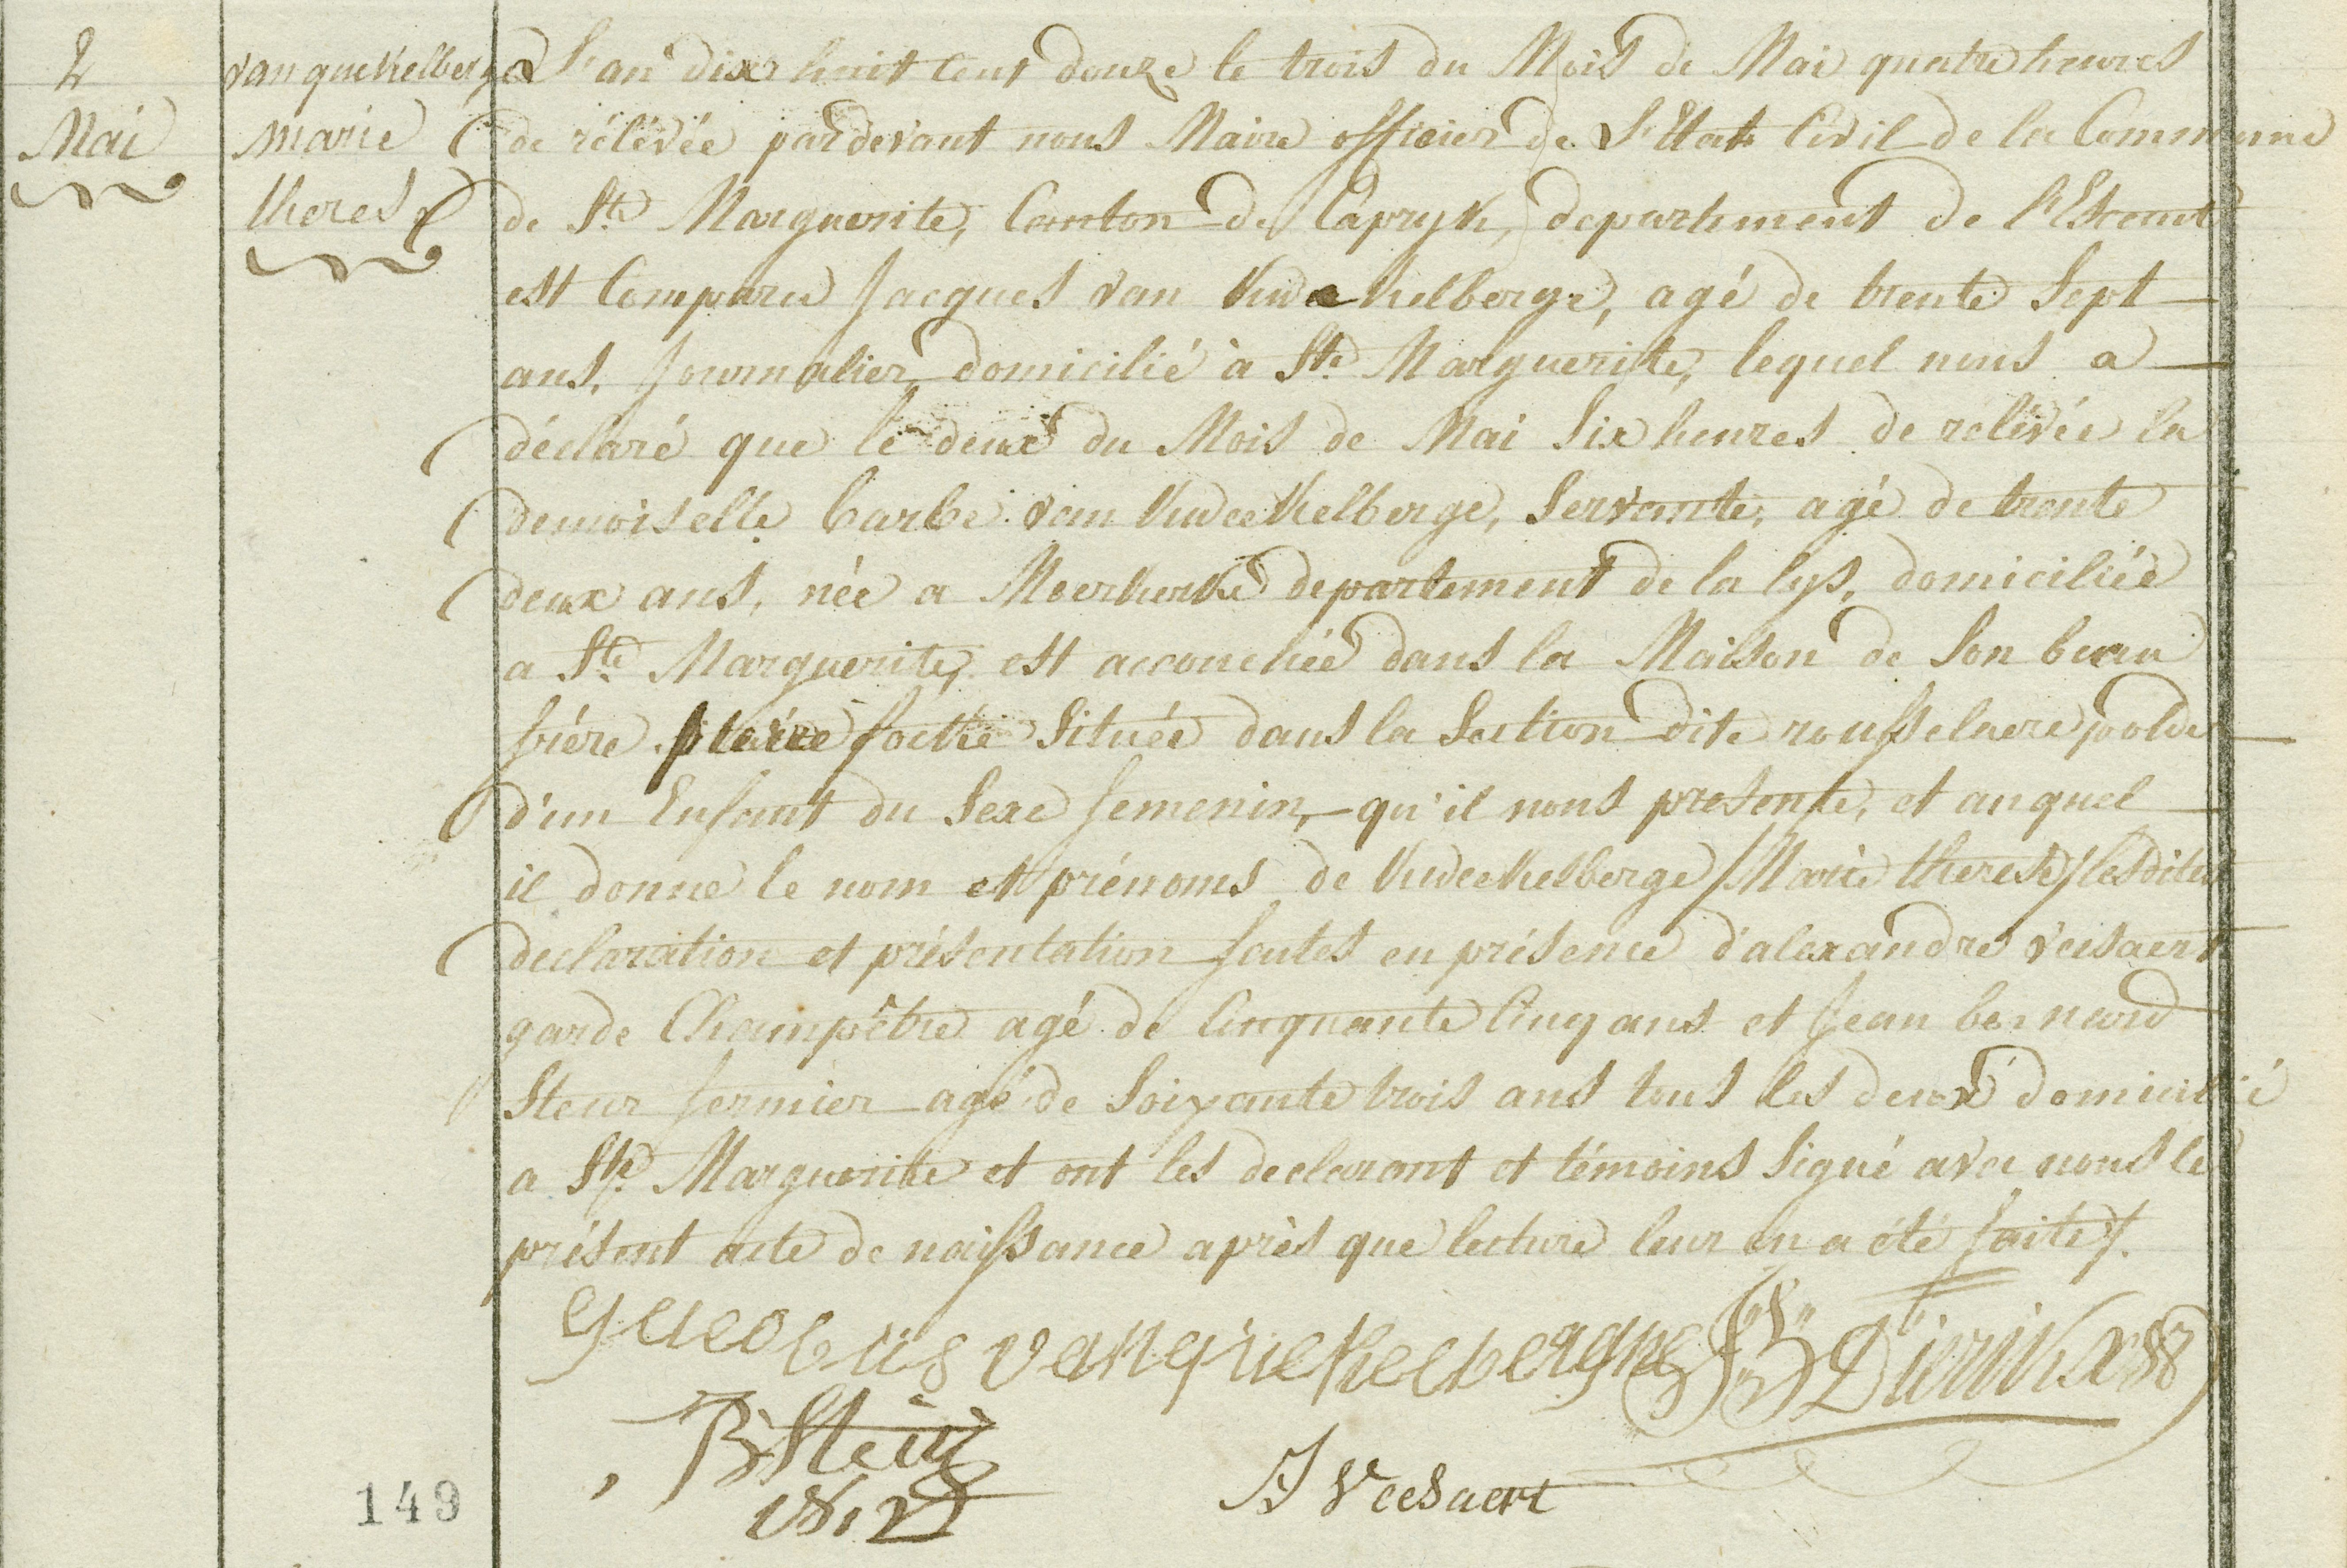 2
Mai
van quekelberge
marie
theres
L'an dix huit cent douze le trois du Mois de Mai quatre heures
de rélévée pardevant nous Maire officier de L'Etat Civil de la Commune
de Ste Marguerite, Canton de Capryk, departement de l'Escaut
est Comparu Jacques van kweekelberge, agé de trente Sept
ans, Journalier domicilié à Ste Marguerite, lequel nous a
déclaré que le deux du Mois de Mai Six heures de relévée la
demoiselle barbe van kweekelberge, Servante, agé de trente
deux ans, née a Moerkerke departement de la lys, domiciliée
a Ste Marguerite, est accouchée dans la Maison de Son beau
frére focke Située dans la Section dite rousselaere polder
d'un Enfant du Sexe femenin, qu'il nous presente, et auquel
il donne le nom et prénoms de kweekelberge /Marie therese/ lesdites
declaration et présentation faites en présence d'alexandre veesaert
garde Champêtre agé de Cinquante Cinq ans et Jean bernard
Steur fermier agé de Soixante trois ans tous les deux domicilié
a Ste Marguerite et ont les declarant et témoins Signé avec nous le
présent acte de naissance après que lecture leur en a été faite /.
Jacobus van quekelberghe
B Steur
1812
Veesaert
149